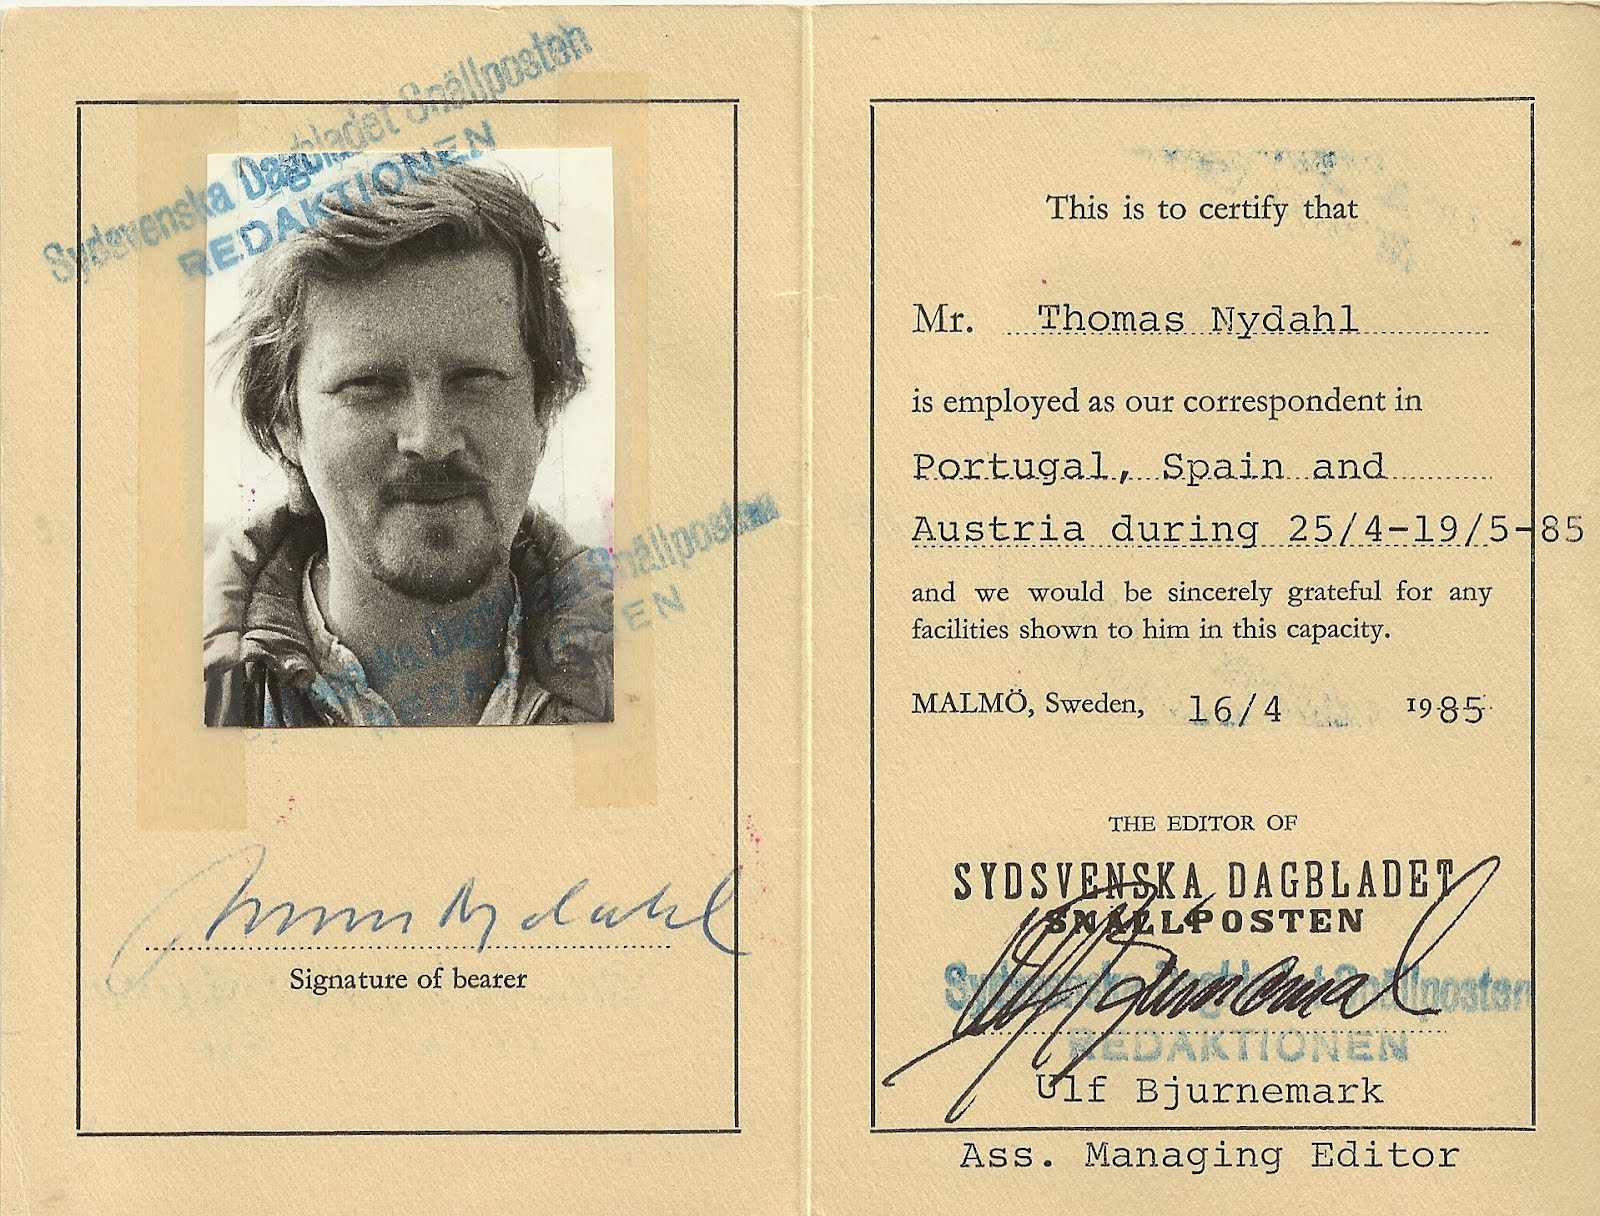 Sydsvenska Dagbladet Snällposten
REDAKTIONEN
Snällposten
Signature of bearer
This is to certify that
Mr. Thomas Nydahl
is employed as our correspondent in
Portugal, Spain and
Austria during 25/4-19/5-85
and we would be sincerely grateful for any
facilities shown to him in this capacity.
MALMÖ, Sweden, 16/4 1985
THE EDITOR OF
SYDSVENSKA DAGBLADET
SNÄLLPOSTEN
Sydsvenska Dagbladet Snällposten
REDAKTIONEN
Ulf Bjurnemark
Ass. Managing Editor